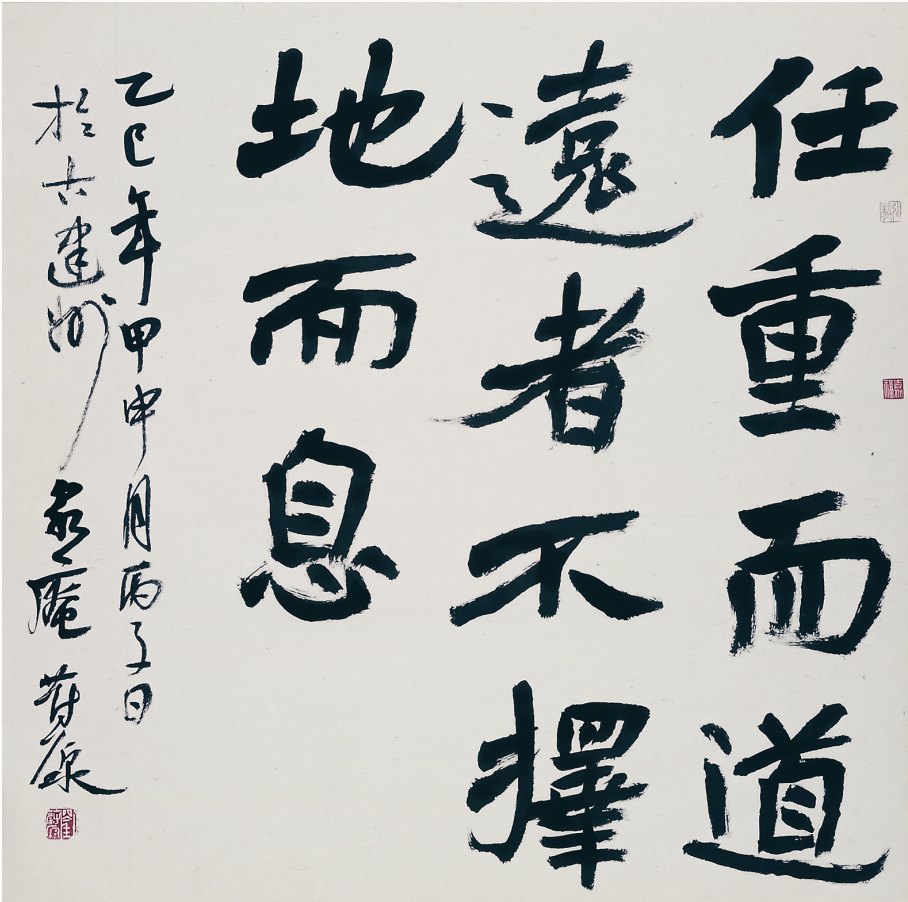 任重而道
遠者不擇
地而息
乙巳年甲申月丙子日
於古建州 庵